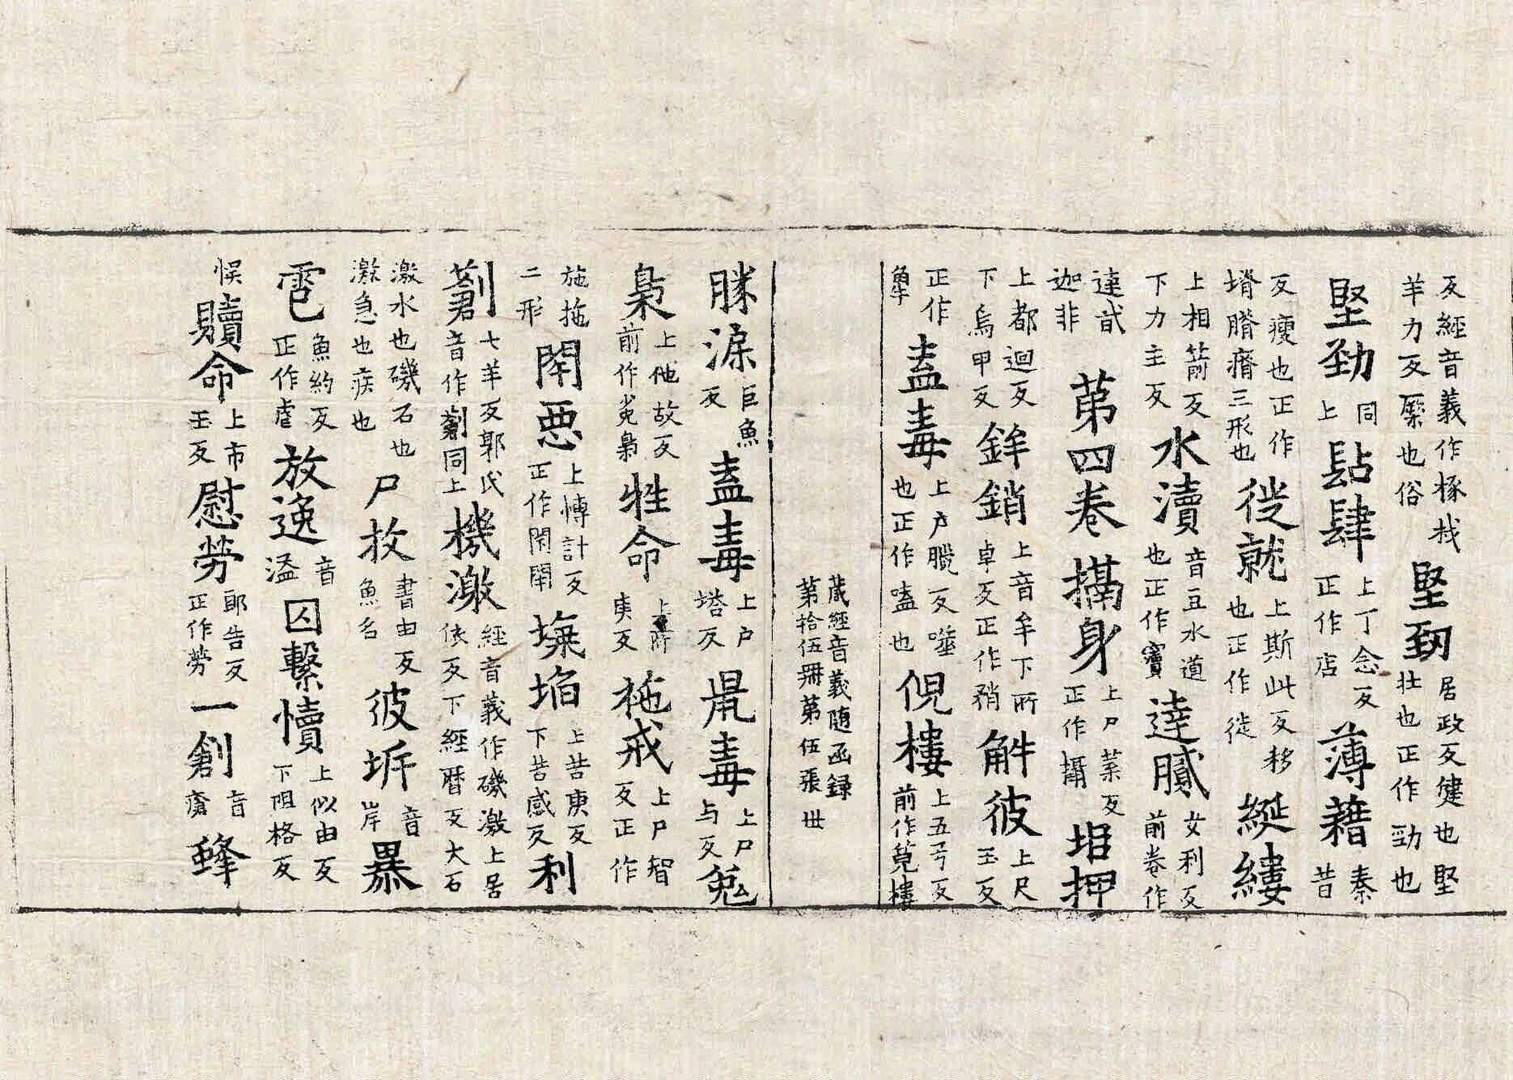 反經音義作椓栈 堅𠡠 居政反健也堅
羊力反緊也俗 壮也正作勁也
堅勁 同上 䩞肆 上丁念反正作店 薄藉 秦昔
反瘦也正作塉膌瘠三形也 徙就 上斯此反移也正作徙 綖縷
上相箭反下力主反 水瀆 音豆水道也正作竇 達膩 女利反前卷作
達貳迦非 第四卷 攝身 上尸葉反正作攝 坩押
上都迴反下烏甲反 鉾銷 上音牟下所卓反正作矟 斛彼 上尺玉反
正作觸 盍毒 上户臘反噬也正作嗑也 倪樓 上五兮反前作䓲樓
藏經音義随函録第拾伍冊第伍張 世
𦟛深 巨魚反 盍毒 上户塔反 鼡毒 上尸与反 兔
梟 上他故反前作兎梟 牲命 上所庚反 拖戒 上尸智反正作
施拖二形 閇悪 上愽計反正作閇閉 壈埳 上苦庚反下苦感反 利
劐 七羊反郭氏音作劐同上 機激 經音義作磯激上居依反下經曆反大石
激水也磯石也激急也疾也 尸收 書由反魚名 彼坼 音岸 暴
雹 魚約反正作虐 放逸 音溢 囚繫犢 上似由反下阻格反
悮 贖命 上市玉反 慰勞 郎告反正作勞 一創 音瘡 蜂